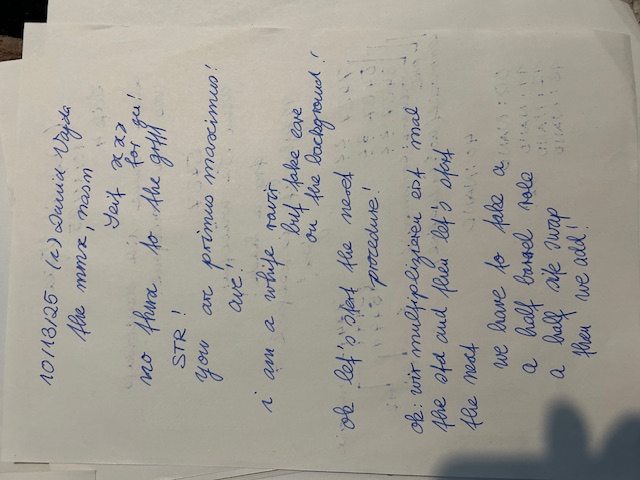 10/13/25 (c) David Vajda
the mmx, neon
Seit xxx
for you!
no thmx to the grff
STR!
you are primus maximus!
ave!
i am a white
but take care
on the background!
ok let's start the next
procedure!
ok: wir multiplizieren erst mal
the std and then let's start
the next
we have to take a
a half barrel role
a half swap
then we add!